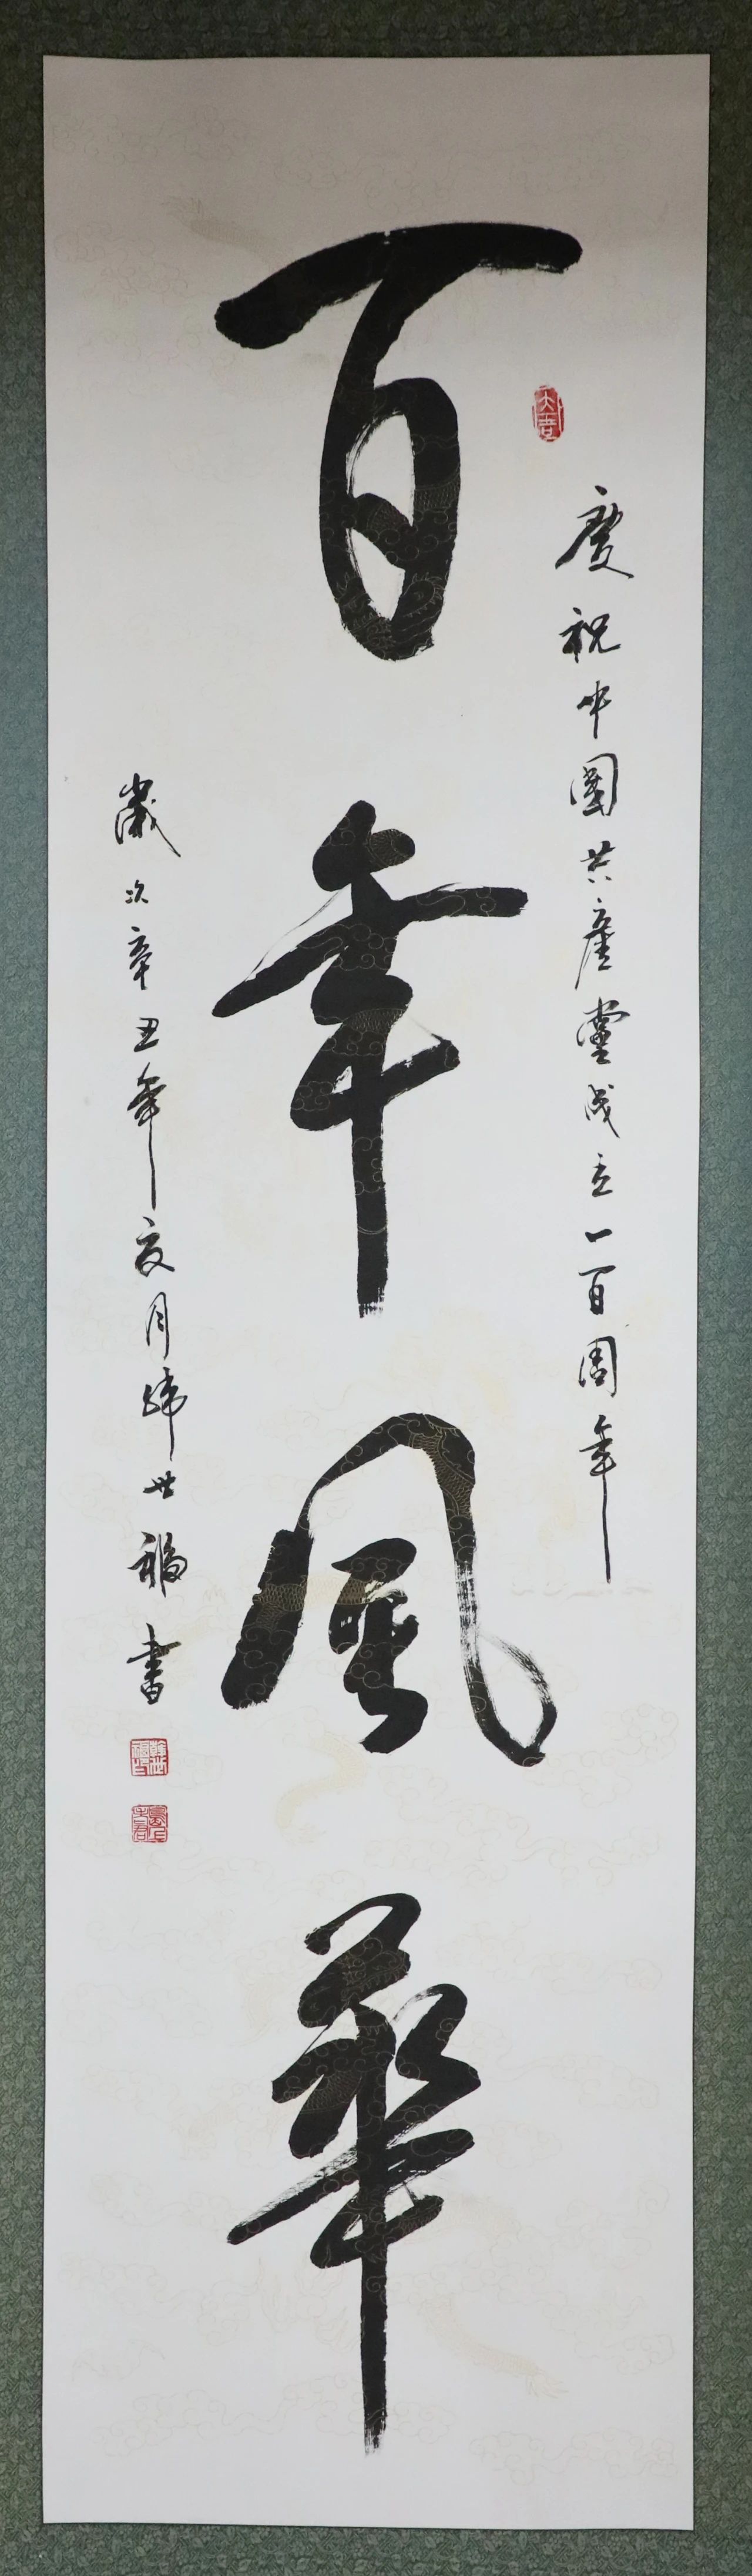 慶祝中國共產黨成立一百周年
百年風華
歲次辛丑年夏月韓世福書
韓世福印